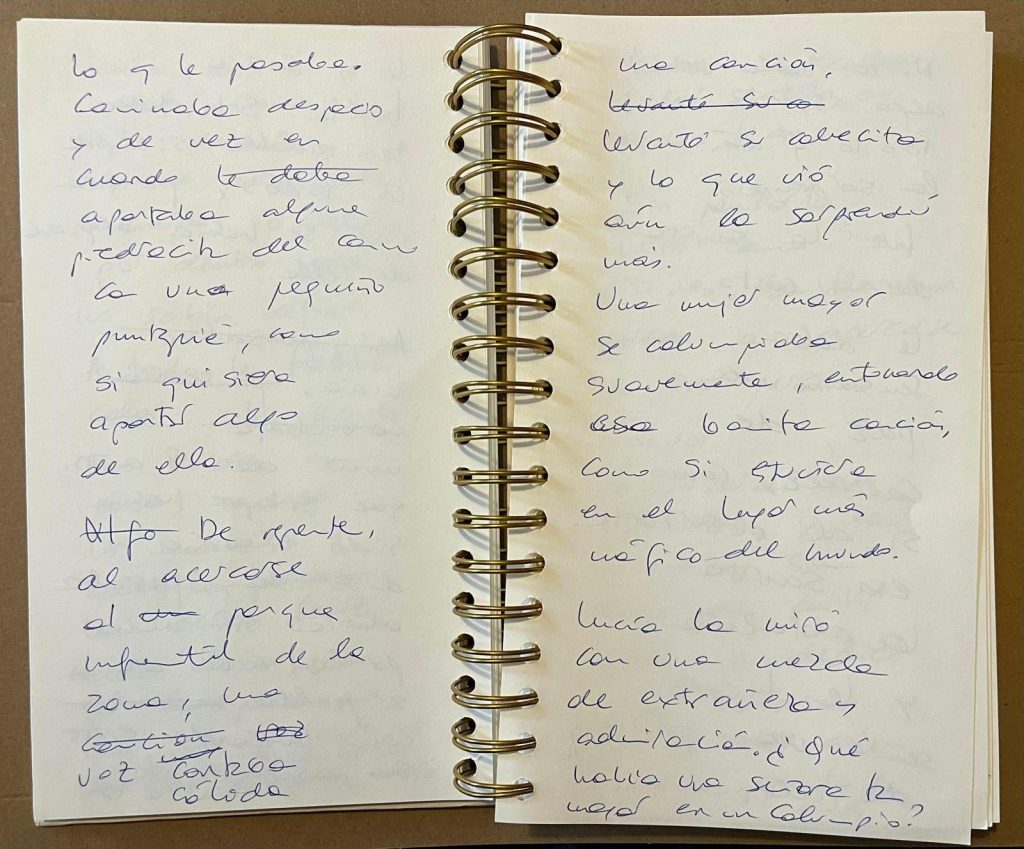 lo q le pasaba.
Caminaba despacio
y de vez en
cuando le daba
apartaba alguna
piedrecita del camino
co una pequeño
puntapié, como
si quisiera
apartar algo
de ella.
Algo De repente,
al acercarse
al parque
infantil de la
zona, una
canción voz
voz cantaba
cálida
una canción,
levantó su ca
levantó su cabecita
y lo que vió
aún la sorprendió
más.
Una mujer mayor
se columpiaba
suavemente, entonando
esa bonita canción,
como si estuviera
en el lugar más
mágico del mundo.
Lucía la miró
con una mezcla
de extrañeza y
admiración. ¿Qué
hacía una señora tan
mayor en un columpio?